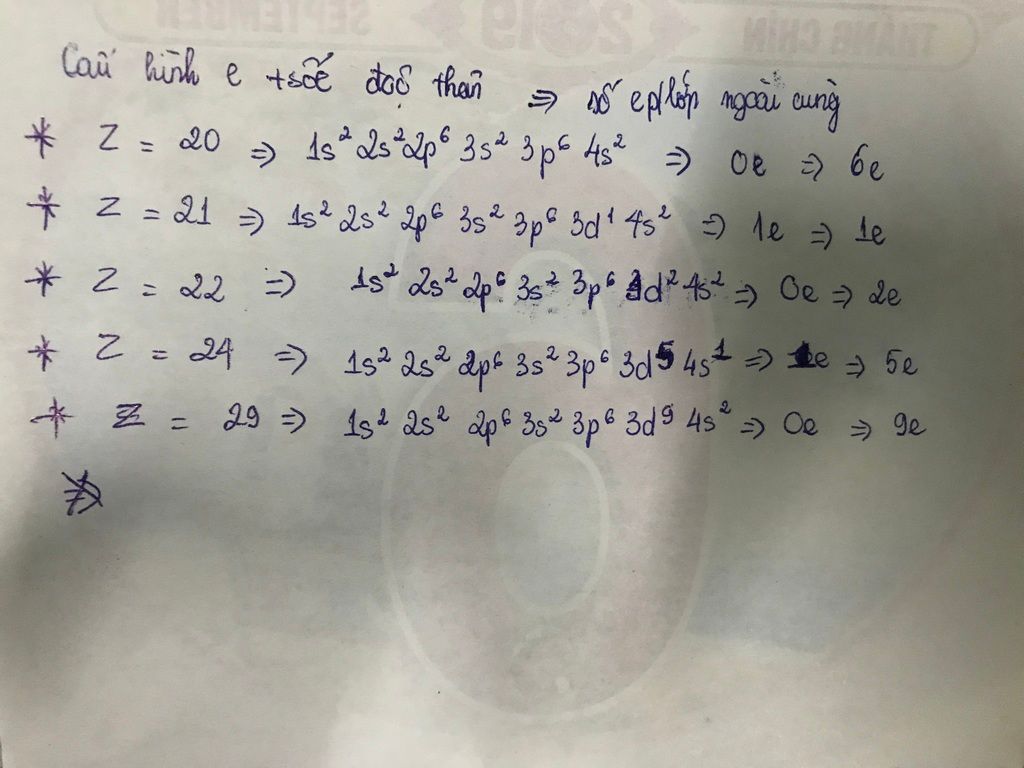 THÁNG CHÍN 2019 SEPTEMBER
Cấu hình e + số e độc thân => số e p/lớp ngoài cùng
* Z = 20 => 1s² 2s² 2p⁶ 3s² 3p⁶ 4s² => 0e => 6e
* Z = 21 => 1s² 2s² 2p⁶ 3s² 3p⁶ 3d¹ 4s² => 1e => 1e
* Z = 22 => 1s² 2s² 2p⁶ 3s² 3p⁶ 3d² 4s² => 0e => 2e
* Z = 24 => 1s² 2s² 2p⁶ 3s² 3p⁶ 3d⁵ 4s¹ => 1e => 5e
* Z = 29 => 1s² 2s² 2p⁶ 3s² 3p⁶ 3d⁹ 4s² => 0e => 9e